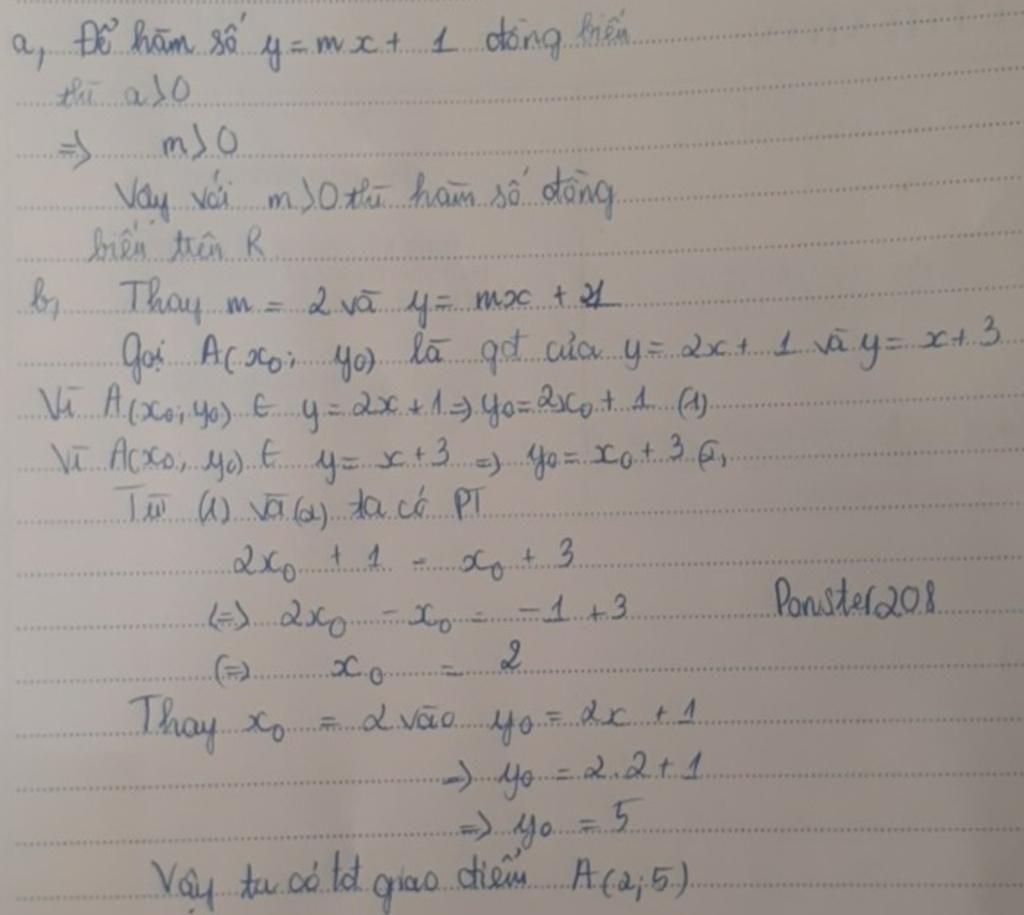 a, Để hàm số y = mx + 1 đồng biến
thì a > 0
=> m > 0
Vậy với m > 0 thì hàm số đồng
biến trên R
b, Thay m = 2 và y = mx + 1
Gọi A(x₀; y₀) là gđ của y = 2x + 1 và y = x + 3
Vì A(x₀; y₀) ∈ y = 2x + 1 => y₀ = 2x₀ + 1 (1)
Vì A(x₀; y₀) ∈ y = x + 3 => y₀ = x₀ + 3 (2)
Từ (1) và (2) ta có PT
2x₀ + 1 = x₀ + 3
(=) 2x₀ - x₀ = -1 + 3
Ponster208
(=) x₀ = 2
Thay x₀ = 2 vào y₀ = 2x + 1
=> y₀ = 2.2 + 1
=> y₀ = 5
Vậy ta có tđ giao điểm A(2;5)